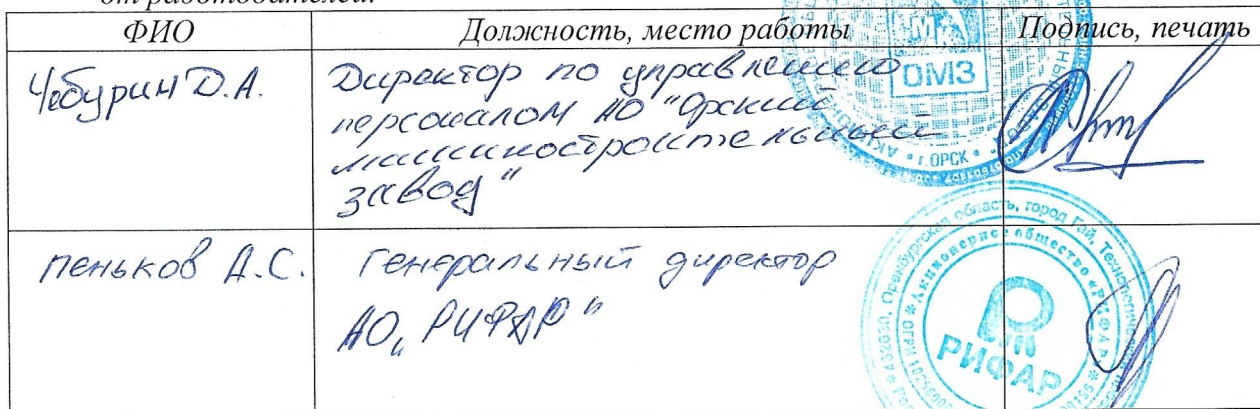 от работодателей:
ФИО
Должность, место работы
Подпись, печать
Чебурин Д.А.
Директор по управлению
персоналом АО "Орский
машиностроительный
завод"
ОМЗ
г.ОРСК
Пеньков А.С.
Генеральный директор
АО „РИФАР"
Оренбургская область, город Гай, Технологическ
Акционерное общество «РИФАР»
РИФАР